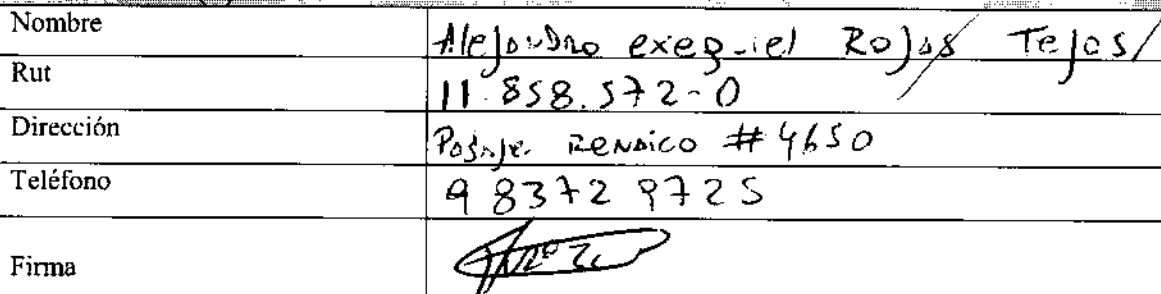 Nombre Alejandro exequiel Rojas Tejos
Rut 11.858.572-0
Dirección Pasaje Renaico #4650
Teléfono 9 8372 9725
Firma